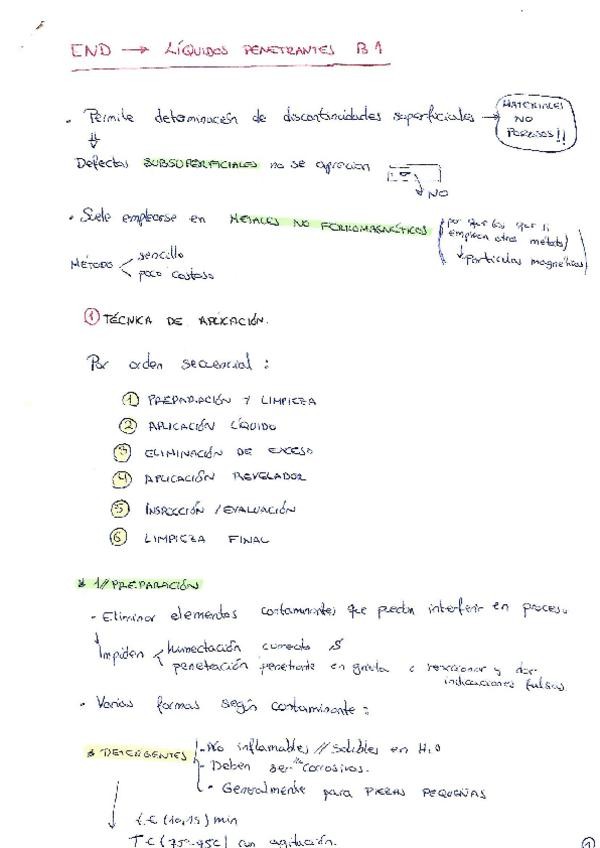 END → LÍQUIDOS PENETRANTES B1
· Permite determinación de discontinuidades superficiales → MATERIALES NO POROSOS!!
Defectos SUBSUPERFICIALES no se aprecian
NO
· Suele emplearse en METALES NO FERROMAGNÉTICOS
empleen otros métodos)
↓ partículas magnéticas
MÉTODO < sencillo
poco costoso
① TÉCNICA DE APLICACIÓN.
Por orden secuencial :
① PREPARACIÓN Y LIMPIEZA
② APLICACIÓN LÍQUIDO
③ ELIMINACIÓN DE EXCESO
④ APLICACIÓN REVELADOR
⑤ INSPECCIÓN / EVALUACIÓN
⑥ LIMPIEZA FINAL
* 1// PREPARACIÓN
- Eliminar elementos contaminantes que puedan interferir en proceso
Impiden < humectación correcta
penetración penetrante en grieta o reaccionar y dar
indicaciones falsas
· Varias formas según contaminante :
* DETERGENTES - No inflamables // Solubles en H2O
- Deben ser no corrosivos.
· Generalmente para PIEZAS PEQUEÑAS
t. € (10,15) min
T € (75º-95C) con agitación.
①